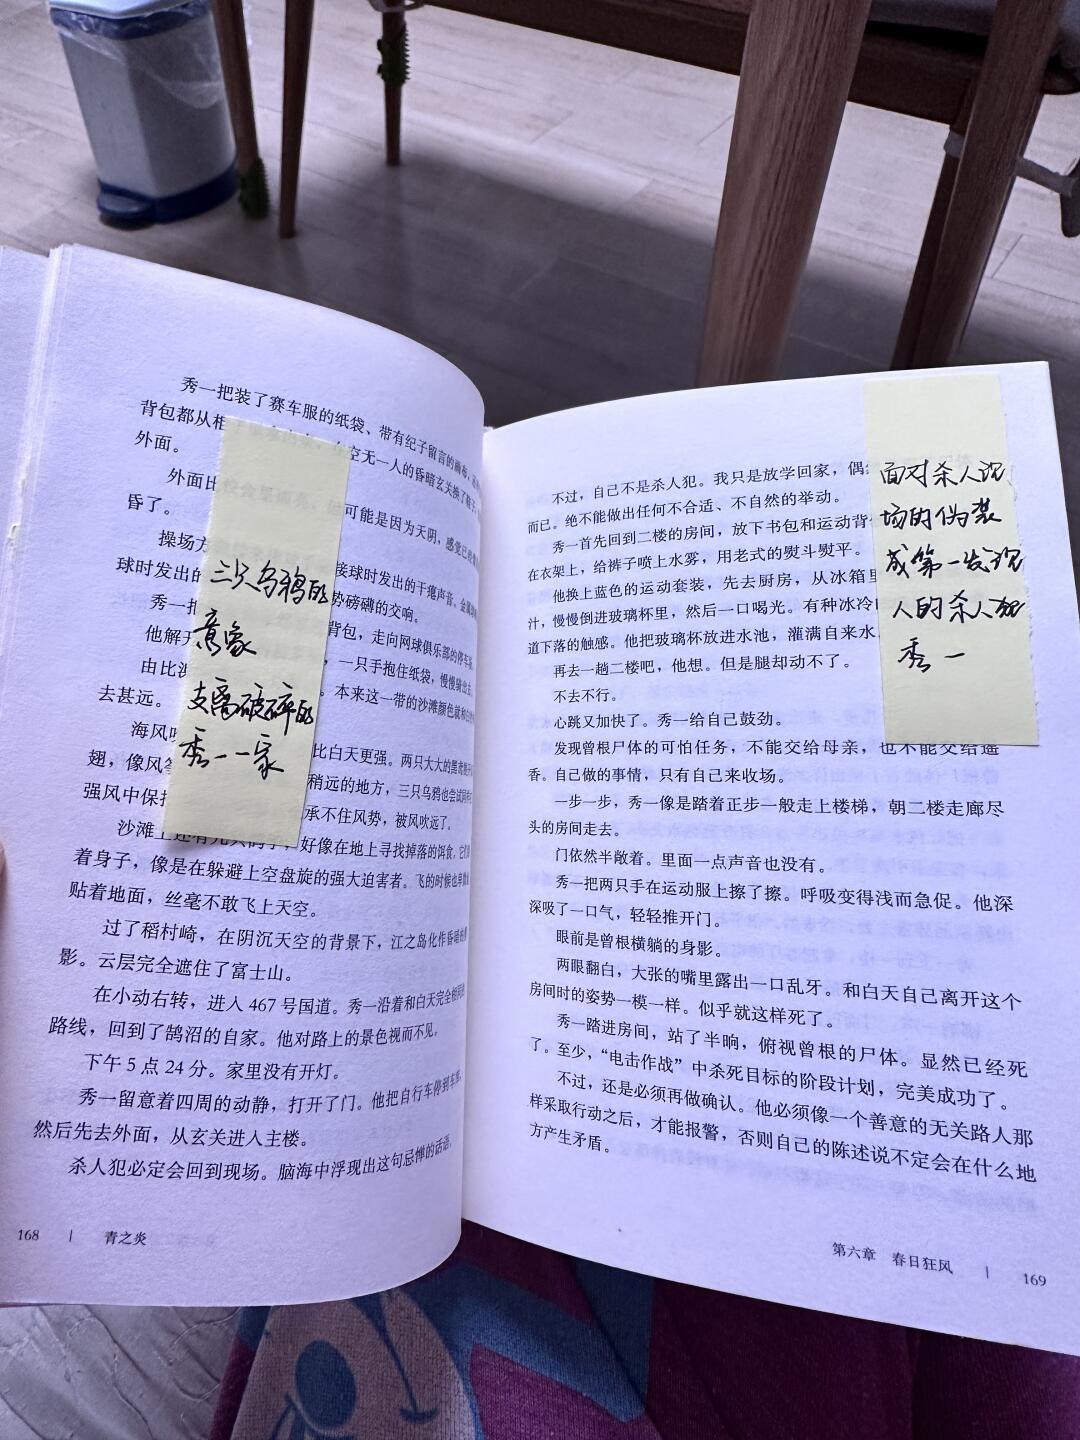 秀一把装了赛车服的纸袋、带有纪子留言的画布、
背包都从柜
空无一人的昏暗玄关换了鞋子,
外面。
外面比
可能是因为天阴,感觉已
昏了。
操场方
接球时发出的干瘪声音、金属
球时发出的
势磅礴的交响。
秀一把
背包,走向网球俱乐部的停车
他解开
,一只手抱住纸袋,慢慢骑出
由比滨
。本来这一带的沙滩颜色就和
去甚远。
海风吹
比白天更强。两只大大的黑鸢
翅,像风筝
稍远的地方,三只乌鸦也尝试
强风中保持
承不住风势,被风吹远了。
沙滩上还有几只鸽子,好像在地上寻找掉落的饵食,它们
着身子,像是在躲避上空盘旋的强大迫害者。飞的时候也
贴着地面,丝毫不敢飞上天空。
过了稻村崎,在阴沉天空的背景下,江之岛化作昏暗的
影。云层完全遮住了富士山。
在小动右转,进入 467 号国道。秀一沿着和白天完全相同的
路线,回到了鹄沼的自家。他对路上的景色视而不见。
下午 5 点 24 分。家里没有开灯。
秀一留意着四周的动静,打开了门。他把自行车停到车库,
然后先去外面,从玄关进入主楼。
杀人犯必定会回到现场。脑海中浮现出这句忌惮的话语,
168 | 青之炎
三只乌鸦的
意象
支离破碎的
秀一一家
不过,自己不是杀人犯。我只是放学回家,偶
而已。绝不能做出任何不合适、不自然的举动。
秀一首先回到二楼的房间,放下书包和运动背
在衣架上,给裤子喷上水雾,用老式的熨斗熨平。
他换上蓝色的运动套装,先去厨房,从冰箱里
汁,慢慢倒进玻璃杯里,然后一口喝光。有种冰冷
道下落的触感。他把玻璃杯放进水池,灌满自来水
再去一趟二楼吧,他想。但是腿却动不了。
不去不行。
心跳又加快了。秀一给自己鼓劲。
发现曾根尸体的可怕任务,不能交给母亲,也不能交给遥
香。自己做的事情,只有自己来收场。
一步一步,秀一像是踏着正步一般走上楼梯,朝二楼走廊尽
头的房间走去。
门依然半敞着。里面一点声音也没有。
秀一把两只手在运动服上擦了擦。呼吸变得浅而急促。他深
深吸了一口气,轻轻推开门。
眼前是曾根横躺的身影。
两眼翻白,大张的嘴里露出一口乱牙。和白天自己离开这个
房间时的姿势一模一样。似乎就这样死了。
秀一踏进房间,站了半晌,俯视曾根的尸体。显然已经死
了。至少,“电击作战”中杀死目标的阶段计划,完美成功了。
不过,还是必须再做确认。他必须像一个善意的无关路人那
样采取行动之后,才能报警,否则自己的陈述说不定会在什么地
方产生矛盾。
第六章 春日狂风 | 169
面对杀人现
场的伪装
成第一发现
人的杀人犯
秀一